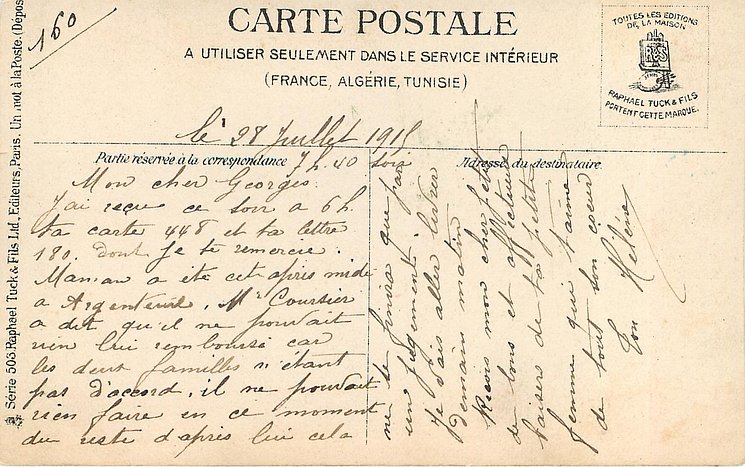 160
CARTE POSTALE
A UTILISER SEULEMENT DANS LE SERVICE INTÉRIEUR
(FRANCE, ALGÉRIE, TUNISIE)
TOUTES LES EDITIONS
DE LA MAISON
RAPHAEL TUCK & FILS
PORTENT CETTE MARQUE.
Série 505 Raphael Tuck & Fils Ltd., Editeurs, Paris. Un mot à la Poste. (Dépos
le 28 Juillet 1915
Partie réservée à la correspondance
Adresse du destinataire.
7h.40 soir
Mon cher Georges.
J'ai reçue ce soir a 6h.
ta carte 448 et ta lettre
180. dont je te remercie.
Maman a été cet après midi
a Argenteuil. Mr Coursier
a dit qu'il ne pouvait
rien lui remboursé car
les deux familles n'étant
pas d'accord, il ne pouvait
rien faire en ce moment
du reste d'après lui cela
ne se finira que par
un jugement.
Je vais aller
demain matin
Reçois mon cher petit
de bons et affectueux
baisers de ta petite
femme que t'aime
de tout son cœur
Ton Hélène